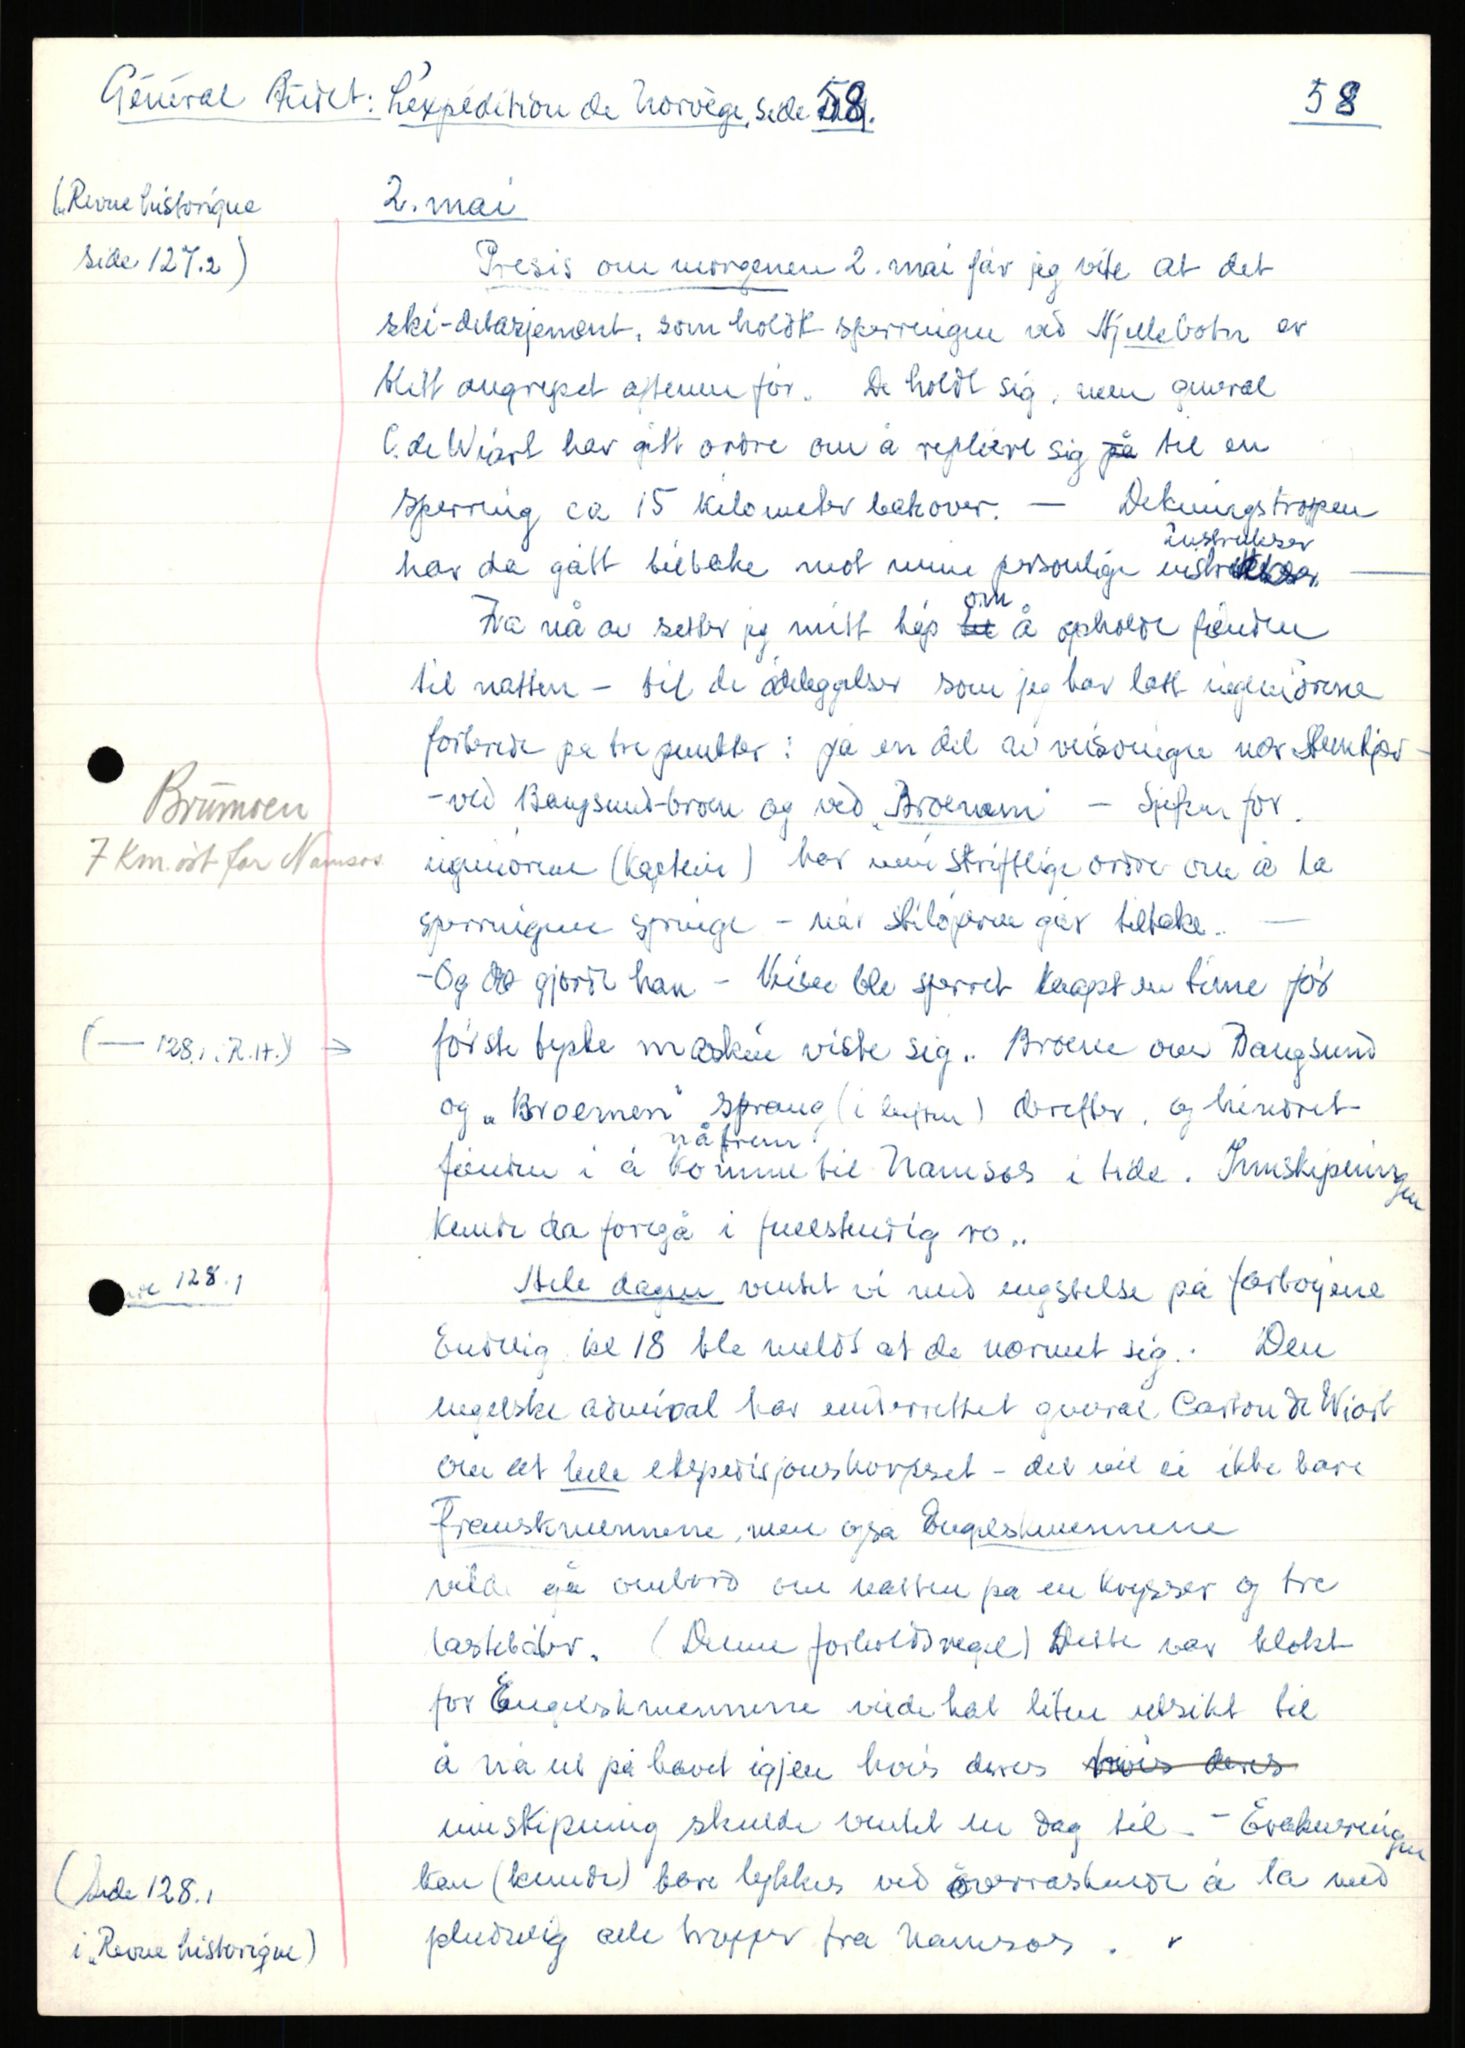 Général Audet: L'expédition de Norvège, side 58.
58
(Revue historique
side 127.2)
2. mai
Presis om morgenen 2. mai får jeg vite at det
ski-detasjement, som holdt sperringen ved Hjellebotn er
blitt angrepet aftenen før. De holdt sig, men general
C. de Wiart har gitt ordre om å replière sig på til en
sperring ca 15 kilometer bakover. — Dekningstroppen
instrukser
har da gått tilbake mot mine personlige —
om
Fra nå av setter jeg mitt håp til å opholde fienden
til natten – til de ødeleggelser som jeg har latt ingeniørene
forberede på tre punkter: på en del av veisvingene nær Stenkjær –
– ved Bangsund-broen og ved "Broemen" – Sjefen for
Brumoen
7 Km. øst for Namsos
ingeniørene (Kaptein) har min skriftlige ordre om å la
sperringene springe – når skiløperne går tilbake. —
– Og det gjorde han – Veien ble sperret knapt en time før
(— 128.1. R.H.) →
første tyske maskin viste sig.. Broene over Bangsund
og "Broemen" sprang (i luften) derefter, og hindret
nå frem
fienden i å komme til Namsos i tide. Innskipningen
kunde da foregå i fullstendig ro..
128.1
Hele dagen ventet vi med engstelse på fartøyene
Endelig kl 18 ble meldt at de nærmet sig.. Den
engelske admiral har underrettet general Carton de Wiart
om at hele ekspedisjonskorpset – det vil si ikke bare
Franskmennene, men også Engelskmennene
vilde gå ombord om natten på en krysser og tre
lastebåter. (Denne forholdsregel) Dette var klokt
for Engelskmennene vilde hat liten utsikt til
å nå ut på havet igjen hvis deres hvis deres
innskipning skulde ventet en dag til – – Evakueringen
kan (kunde) bare lykkes ved overraskende å ta med
(Side 128.1
i "Revue historique)
pludselig alle tropper fra Namsos.